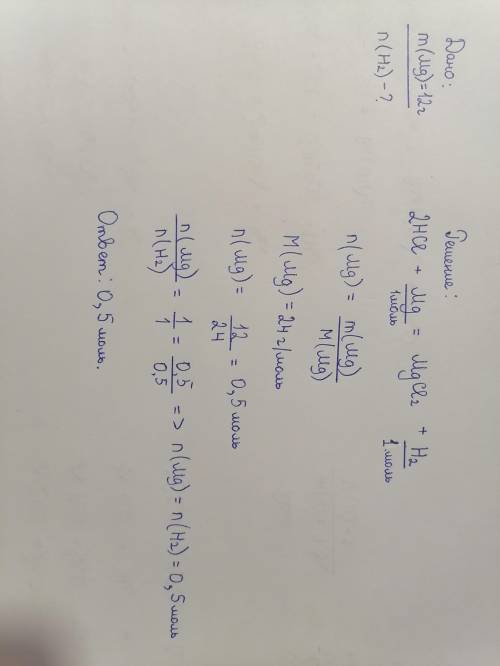 Дано:
m(Mg)=12г
n(H₂)-?
Решение:
2HCl + Mg = MgCl₂ + H₂
1моль 1моль
n(Mg) = m(Mg)/M(Mg)
M(Mg) = 24г/моль
n(Mg) = 12/24 = 0,5моль
n(Mg)/n(H₂) = 1/1 = 0,5/0,5 => n(Mg) = n(H₂) = 0,5моль
Ответ: 0,5моль.